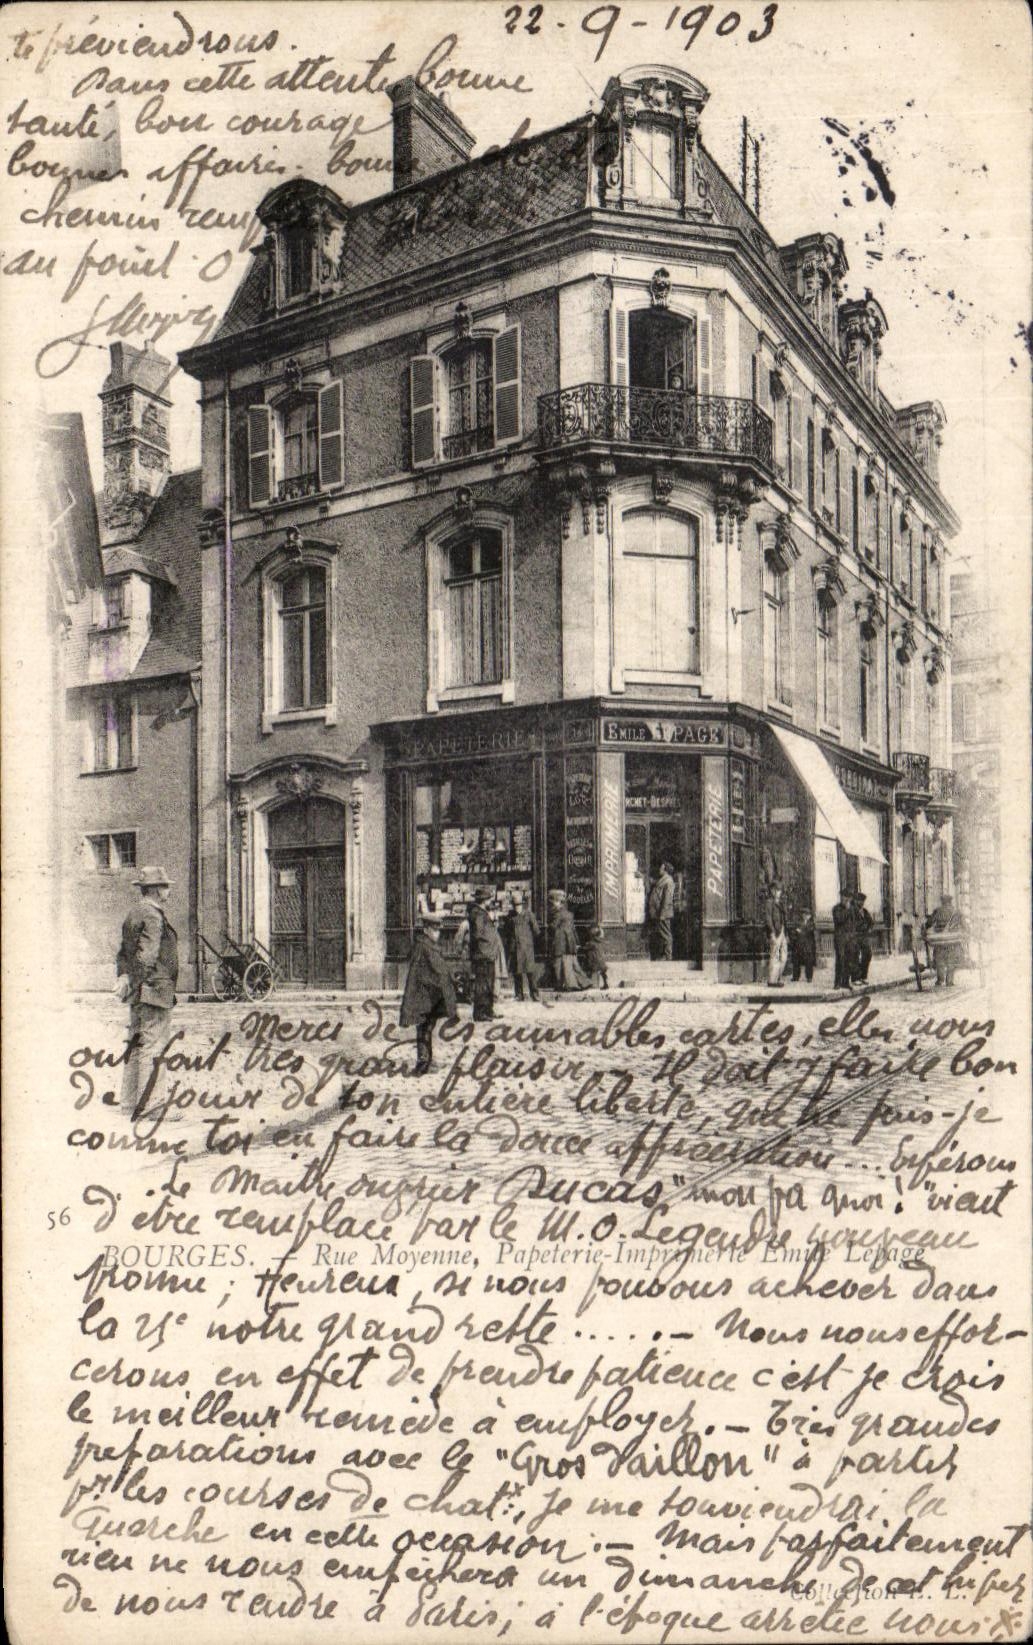 22-9-1903
te préviendrons.
Dans cette attente bonne
santé, bon courage
bonnes affaires. bonne
chemin remp
au point. O
PAPETERIE
EMILE LEPAGE
IMPRIMERIE
PAPETERIE
Merci de tes aimables cartes, elles nous
ont fait très grand plaisir. — Il doit y faire bon
de jouir de ton entière liberté, que ne puis-je
comme toi en faire la douce appréciation... Espérons
Le Maître ouvrier Ducas, "mon pa quoi!" vient
d'être remplacé par le M.O. Legendre nouveau
56 BOURGES. — Rue Moyenne, Papeterie-Imprimerie Emile Lepage
promu; Heureux, si nous pouvons achever dans
la 25e notre grand reste ..... — Nous nous effor-
cerons en effet de prendre patience c'est je crois
le meilleur remède à employer. — Très grandes
préparations avec le "Gros Daillon" à partir
pr les courses de chatx, je me souviendrai la
Guerche en cette occasion. — Mais parfaitement
rien ne nous empêchera un dimanche de cet hiver
de nous rendre à Paris; à l'époque arrêtée nous
Collection L. L.